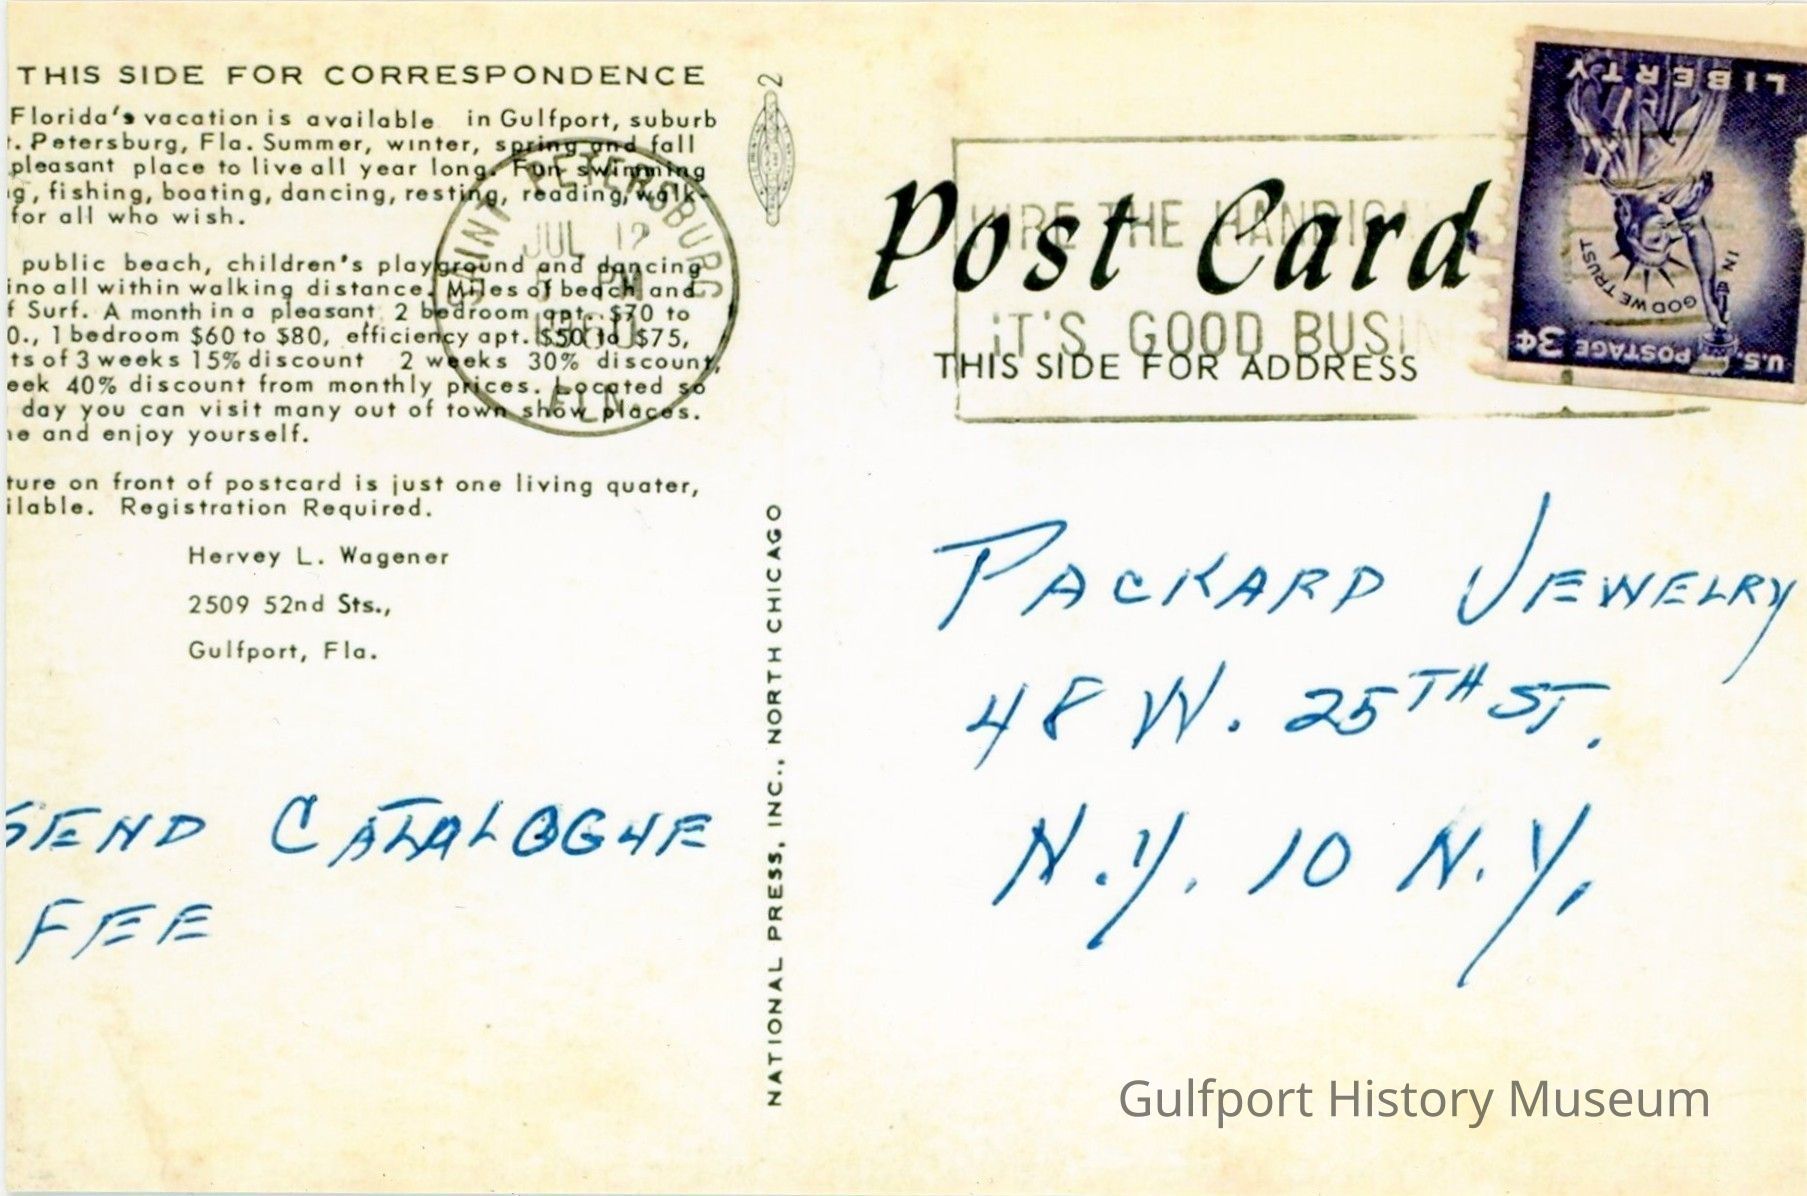 THIS SIDE FOR CORRESPONDENCE
Florida's vacation is available in Gulfport, suburb
t. Petersburg, Fla. Summer, winter, spring and fall
pleasant place to live all year long. Fun swimming
g, fishing, boating, dancing, resting, reading, walk-
for all who wish.
public beach, children's playground and dancing
ino all within walking distance. Miles of beach and
f Surf. A month in a pleasant 2 bedroom apt. $70 to
0., 1 bedroom $60 to $80, efficiency apt. $50 to $75,
ts of 3 weeks 15% discount 2 weeks 30% discount,
eek 40% discount from monthly prices. Located so
day you can visit many out of town show places.
e and enjoy yourself.
ture on front of postcard is just one living quater,
ilable. Registration Required.
Hervey L. Wagener
2509 52nd Sts.,
Gulfport, Fla.
SEND CATALOGUE
FEE
SAINT PETERSBURG
JUL 12
PM
FLA
2
NATIONAL PRESS, INC., NORTH CHICAGO
Post Card
THIS SIDE FOR ADDRESS
HIRE THE HANDIC
iT'S GOOD BUSIN
LIBERTY
IN GOD WE TRUST
U.S. POSTAGE 3¢
PACKARD JEWELRY
48 W. 25TH ST.
N.Y. 10 N.Y.
Gulfport History Museum